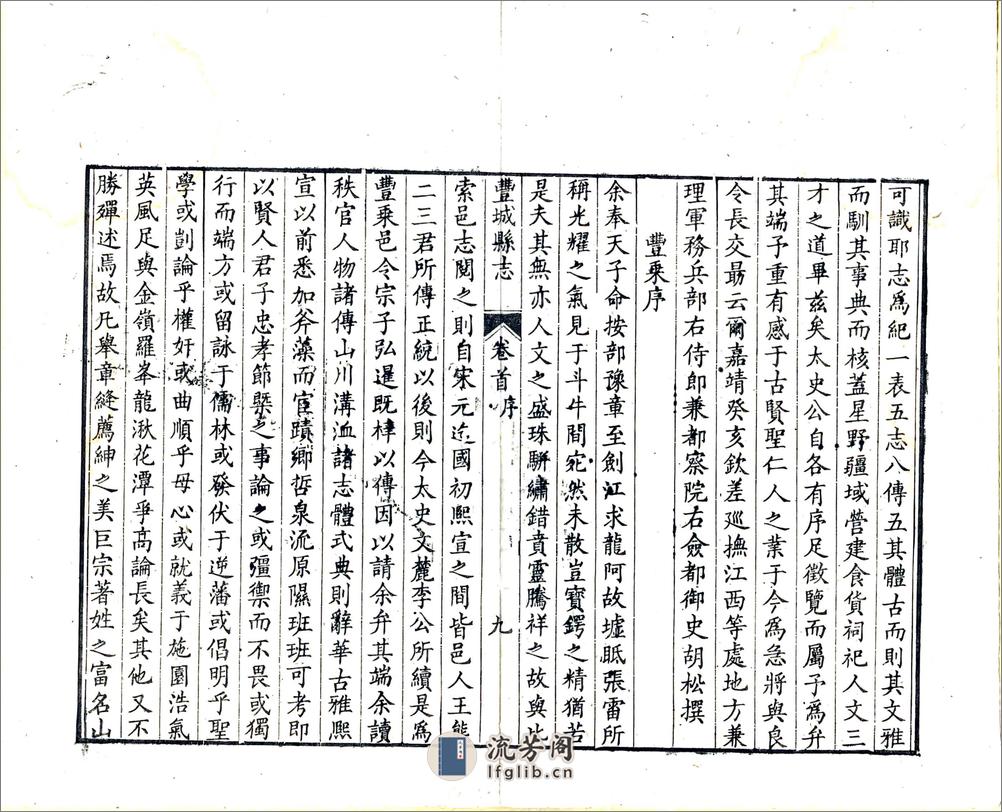 可識耶志爲紀一表五志八傳五其體古而則其文雅
而馴其事典而核蓋星野疆域營建食貨祠祀人文三
才之道畢茲矣太史公自各有序足徵覽而屬予爲弁
其端予重有感于古賢聖仁人之業于今爲急將與良
令長交勗云爾嘉靖癸亥欽差廵撫江西等處地方兼
理軍務兵部右侍郎兼都察院右僉都御史胡松撰
豐乘序
余奉天子命按部豫章至劍江求龍阿故墟眂張雷所
稱光耀之氣見于斗牛間宛然未散豈寶鍔之精猶若
是夫其無亦人文之盛珠駢繡錯賁靈騰祥之故與比
豐城縣志
卷首 序
九
索邑志閱之則自宋元迄國初熙宣之間皆邑人王熊
二三君所傳正統以後則今太史文麓李公所續是爲
豐乘邑令宗子弘暹既梓以傳因以請余弁其端余讀
秩官人物諸傳山川溝洫諸志體式典則辭華古雅熙
宣以前悉加斧藻而宦蹟鄉哲泉流原隰班班可考即
以賢人君子忠孝節槩之事論之或彊禦而不畏或獨
行而端方或留詠于儒林或發伏于逆藩或倡明乎聖
學或剴論乎權奸或曲順乎母心或就義于施園浩氣
英風足與金嶺羅峯龍湫花潭爭高論長矣其他又不
勝殫述焉故凢舉章縫薦紳之美巨宗著姓之富名山
流芳阁
lfglib.cn